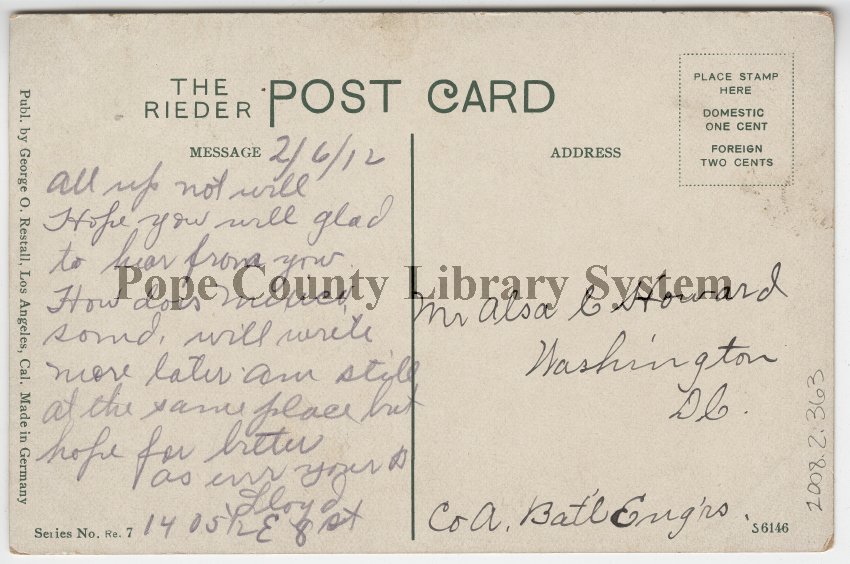 THE
RIEDER POST CARD
PLACE STAMP
HERE
DOMESTIC
ONE CENT
FOREIGN
TWO CENTS
MESSAGE 2/6/12
ADDRESS
all up not will
Hope you will glad
to hear from you.
How does Mexico,
sound, will write
more later am still
at the same place but
hope for better
as ever yours
Lloyd
1405½ E 8 St
Pope County Library System
Mr Alsa C Howard
Washington
DC.
Co A. Bat'l Eng'rs.
Publ. by George O. Restall, Los Angeles, Cal. Made in Germany
Series No. Re. 7
S 6146
2008.2.363